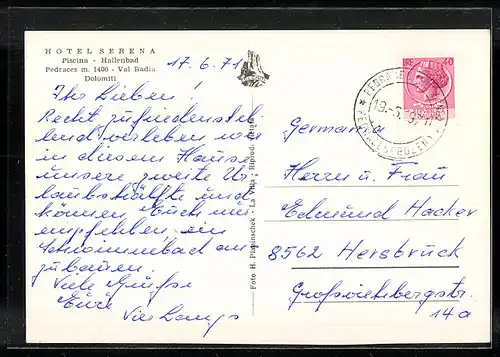 HOTEL SERENA
Piscina - Hallenbad
Pedraces m. 1400 - Val Badia
Dolomiti
17.6.71
Ihr Lieben!
Recht zufriedenstel
lend verleben wir
in diesem Hause
unsere zweite Ur
laubshälfte und
können Euch nur
empfehlen, ein
Schwimmbad an
zubauen.
Viele Grüße
Eure
Foto H. - La Villa - Riprod.
40
Germania
Herrn u. Frau
Edmund Hacker
8562 Hersbruck
Großviehbergstr.
14a